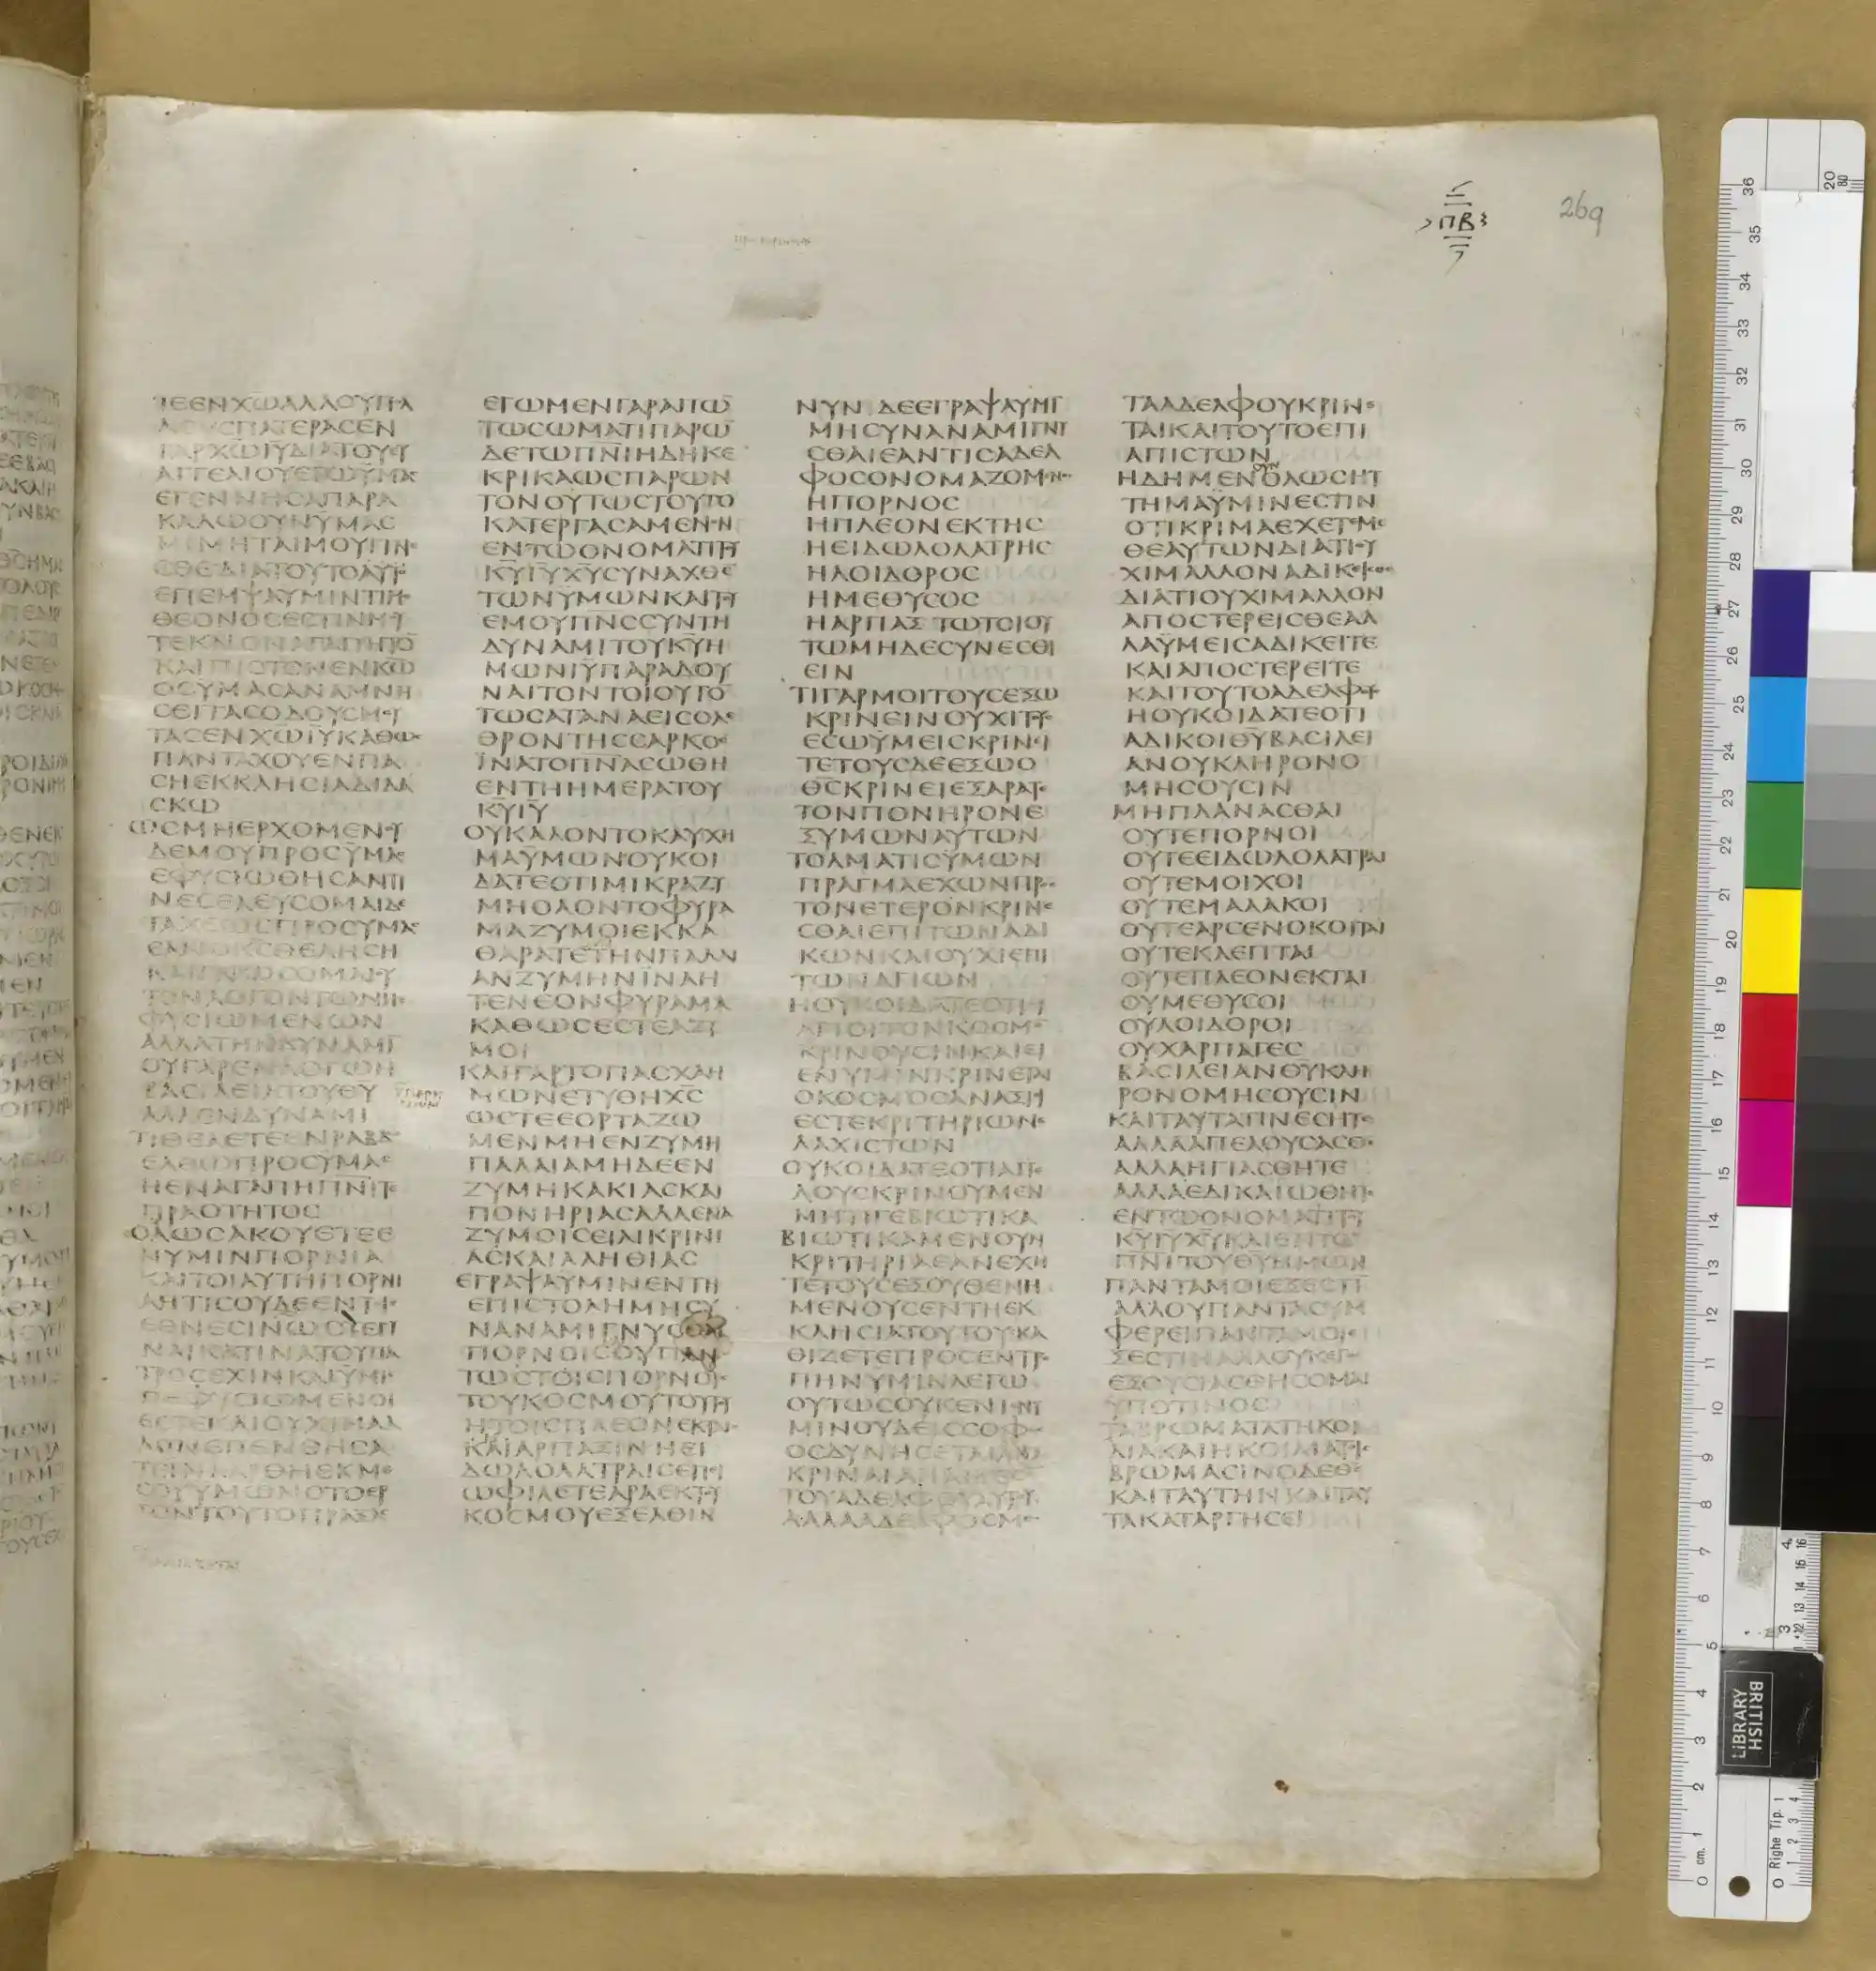 ΠΒ
269
ΤΕΕΝΧΩΑΛΛΟΥΠΛ
ΛΟΥϹΠΑΤΕΡΑϹΕΝ
ΓΑΡΧΩΙΥΔΙΑΤΟΥΕΥ
ΑΓΓΕΛΙΟΥΕΓΩΫΜΑϹ
ΕΓΕΝΝΗϹΑΠΑΡΑ
ΚΑΛΩΟΥΝΫΜΑϹ
ΜΙΜΗΤΑΙΜΟΥΓΙΝΕ
ϹΘΕΔΙΑΤΟΥΤΟΑΥΤΟ
ΕΠΕΜΨΑΫΜΙΝΤΙΜ
ΘΕΟΝΟϹΕϹΤΙΝΜΟΥ
ΤΕΚΝΟΝΑΓΑΠΗΤΟ
ΚΑΙΠΙϹΤΟΝΕΝΚΩ
ΟϹΫΜΑϹΑΝΑΜΝΗ
ϹΕΙΤΑϹΟΔΟΥϹΜΟΥ
ΤΑϹΕΝΧΩΙΥΚΑΘΩϹ
ΠΑΝΤΑΧΟΥΕΝΠΑ
ϹΗΕΚΚΛΗϹΙΑΔΙΔΑ
ϹΚΩ
ΩϹΜΗΕΡΧΟΜΕΝΟΥ
ΔΕΜΟΥΠΡΟϹΫΜΑϹ
ΕΦΥϹΙΩΘΗϹΑΝΤΙ
ΝΕϹΕΛΕΥϹΟΜΑΙΔΕ
ΤΑΧΕΩϹΠΡΟϹΫΜΑϹ
ΕΑΝΟΚϹΘΕΛΗϹΗ
ΚΑΙΓΝΩϹΟΜΑΙΟΥ
ΤΟΝΛΟΓΟΝΤΩΝΠΕ
ΦΥϹΙΩΜΕΝΩΝ
ΑΛΛΑΤΗΝΔΥΝΑΜΙ
ΟΥΓΑΡΕΝΛΟΓΩΗ
ΒΑϹΙΛΕΙΑΤΟΥΘΥ
ΑΛΛΕΝΔΥΝΑΜΙ
ΤΙΘΕΛΕΤΕΕΝΡΑΒΔΩ
ΕΛΘΩΠΡΟϹΫΜΑϹ
ΗΕΝΑΓΑΠΗΠΝΙΤΕ
ΠΡΑΟΤΗΤΟϹ
ΟΛΩϹΑΚΟΥΕΤΕΕ
ΝΥΜΙΝΠΟΡΝΙΑ
ΚΑΙΤΟΙΑΥΤΗΠΟΡΝΙ
ΑΗΤΙϹΟΥΔΕΕΝΤΟΙϹ
ΕΘΝΕϹΙΝΩϹΤΕΓΥ
ΝΑΙΚΑΤΙΝΑΤΟΥΠΑ
ΤΡΟϹΕΧΙΝΚΑΙΫΜΙϹ
ΠΕΦΥϹΙΩΜΕΝΟΙ
ΕϹΤΕΚΑΙΟΥΧΙΜΑΛ
ΛΟΝΕΠΕΝΘΗϹΑ
ΤΕΙΝΑΑΡΘΗΕΚΜΕ
ϹΟΥΫΜΩΝΟΤΟΕΡ
ΓΟΝΤΟΥΤΟΠΡΑΞΑϹ
ΕΓΩΜΕΝΓΑΡΑΠΩ
ΤΩϹΩΜΑΤΙΠΑΡΩ
ΔΕΤΩΠΝΙΗΔΗΚΕ
ΚΡΙΚΑΩϹΠΑΡΩΝ
ΤΟΝΟΥΤΩϹΤΟΥΤΟ
ΚΑΤΕΡΓΑϹΑΜΕΝΟΝ
ΕΝΤΩΟΝΟΜΑΤΙΤΟΥ
ΚΥΙΥΧΥϹΥΝΑΧΘΕ
ΤΩΝΫΜΩΝΚΑΙΤΟΥ
ΕΜΟΥΠΝϹϹΥΝΤΗ
ΔΥΝΑΜΙΤΟΥΚΥΗ
ΜΩΝΙΥΠΑΡΑΔΟΥ
ΝΑΙΤΟΝΤΟΙΟΥΤΟ
ΤΩϹΑΤΑΝΑΕΙϹΟΛΕ
ΘΡΟΝΤΗϹϹΑΡΚΟϹ
ΪΝΑΤΟΠΝΑϹΩΘΗ
ΕΝΤΗΗΜΕΡΑΤΟΥ
ΚΥΙΥ
ΟΥΚΑΛΟΝΤΟΚΑΥΧΗ
ΜΑΫΜΩΝΟΥΚΟΙ
ΔΑΤΕΟΤΙΜΙΚΡΑΖΥ
ΜΗΟΛΟΝΤΟΦΥΡΑ
ΜΑΖΥΜΟΙΕΚΚΑ
ΘΑΡΑΤΕΤΗΝΠΑΛΑΙ
ΑΝΖΥΜΗΝΪΝΑΗ
ΤΕΝΕΟΝΦΥΡΑΜΑ
ΚΑΘΩϹΕϹΤΕΑΖΥ
ΜΟΙ
ΚΑΙΓΑΡΤΟΠΑϹΧΑΗ
ΜΩΝΕΤΥΘΗΧϹ
ΩϹΤΕΕΟΡΤΑΖΩ
ΜΕΝΜΗΕΝΖΥΜΗ
ΠΑΛΑΙΑΜΗΔΕΕΝ
ΖΥΜΗΚΑΚΙΑϹΚΑΙ
ΠΟΝΗΡΙΑϹΑΛΛΕΝΑ
ΖΥΜΟΙϹΕΙΛΙΚΡΙΝΙ
ΑϹΚΑΙΑΛΗΘΙΑϹ
ΕΓΡΑΨΑΫΜΙΝΕΝΤΗ
ΕΠΙϹΤΟΛΗΜΗϹΥ
ΝΑΝΑΜΙΓΝΥϹΘΑΙ
ΠΟΡΝΟΙϹΟΥΠΑΝ
ΤΩϹΤΟΙϹΠΟΡΝΟΙϹ
ΤΟΥΚΟϹΜΟΥΤΟΥΤΟΥ
ΗΤΟΙϹΠΛΕΟΝΕΚΤΑΙϹ
ΚΑΙΑΡΠΑΞΙΝΗΕΙ
ΔΩΛΟΛΑΤΡΑΙϹΕΠΕΙ
ΩΦΙΛΕΤΕΑΡΑΕΚΤΟΥ
ΚΟϹΜΟΥΕΞΕΛΘΙΝ
ΝΥΝΔΕΕΓΡΑΨΑΫΜΙ
ΜΗϹΥΝΑΝΑΜΙΓΝΥ
ϹΘΑΙΕΑΝΤΙϹΑΔΕΛ
ΦΟϹΟΝΟΜΑΖΟΜΕΝΟϹ
ΗΠΟΡΝΟϹ
ΗΠΛΕΟΝΕΚΤΗϹ
ΗΕΙΔΩΛΟΛΑΤΡΗϹ
ΗΛΟΙΔΟΡΟϹ
ΗΜΕΘΥϹΟϹ
ΗΑΡΠΑΞΤΩΤΟΙΟΥ
ΤΩΜΗΔΕϹΥΝΕϹΘΙ
ΕΙΝ
ΤΙΓΑΡΜΟΙΤΟΥϹΕΞΩ
ΚΡΙΝΕΙΝΟΥΧΙΤΟΥϹ
ΕϹΩΫΜΕΙϹΚΡΙΝΕ
ΤΕΤΟΥϹΔΕΕΞΩΟ
ΘϹΚΡΙΝΕΙΕΞΑΡΑΤΕ
ΤΟΝΠΟΝΗΡΟΝΕ
ΞΥΜΩΝΑΥΤΩΝ
ΤΟΛΜΑΤΙϹΫΜΩΝ
ΠΡΑΓΜΑΕΧΩΝΠΡΟϹ
ΤΟΝΕΤΕΡΟΝΚΡΙΝΕ
ϹΘΑΙΕΠΙΤΩΝΑΔΙ
ΚΩΝΚΑΙΟΥΧΙΕΠΙ
ΤΩΝΑΓΙΩΝ
ΗΟΥΚΟΙΔΑΤΕΟΤΙΟΙ
ΑΓΙΟΙΤΟΝΚΟϹΜΟ
ΚΡΙΝΟΥϹΙΝΚΑΙΕΙ
ΕΝΫΜΙΝΚΡΙΝΕΤΑΙ
ΟΚΟϹΜΟϹΑΝΑΞΙΟΙ
ΕϹΤΕΚΡΙΤΗΡΙΩΝΕ
ΛΑΧΙϹΤΩΝ
ΟΥΚΟΙΔΑΤΕΟΤΙΑΓΓΕ
ΛΟΥϹΚΡΙΝΟΥΜΕΝ
ΜΗΤΙΓΕΒΙΩΤΙΚΑ
ΒΙΩΤΙΚΑΜΕΝΟΥΝ
ΚΡΙΤΗΡΙΑΕΑΝΕΧΗ
ΤΕΤΟΥϹΕΞΟΥΘΕΝΗ
ΜΕΝΟΥϹΕΝΤΗΕΚ
ΚΛΗϹΙΑΤΟΥΤΟΥϹΚΑ
ΘΙΖΕΤΕΠΡΟϹΕΝΤΡΟ
ΠΗΝΫΜΙΝΛΕΓΩ
ΟΥΤΩϹΟΥΚΕΝΙΕΝΫ
ΜΙΝΟΥΔΕΙϹϹΟΦΟϹ
ΟϹΔΥΝΗϹΕΤΑΙΔΙΑ
ΚΡΙΝΑΙΑΝΑΜΕϹΟ
ΤΟΥΑΔΕΛΦΟΥΑΥΤΟΥ
ΑΛΛΑΑΔΕΛΦΟϹΜΕ
ΤΑΑΔΕΛΦΟΥΚΡΙΝΕ
ΤΑΙΚΑΙΤΟΥΤΟΕΠΙ
ΑΠΙϹΤΩΝ
ΟΥΝ
ΗΔΗΜΕΝΟΛΩϹΗΤ
ΤΗΜΑΫΜΙΝΕϹΤΙΝ
ΟΤΙΚΡΙΜΑΕΧΕΤΕΜΕ
ΘΕΑΥΤΩΝΔΙΑΤΙΟΥ
ΧΙΜΑΛΛΟΝΑΔΙΚΕΙϹΘΕ
ΔΙΑΤΙΟΥΧΙΜΑΛΛΟΝ
ΑΠΟϹΤΕΡΕΙϹΘΕΑΛ
ΛΑΫΜΕΙϹΑΔΙΚΕΙΤΕ
ΚΑΙΑΠΟϹΤΕΡΕΙΤΕ
ΚΑΙΤΟΥΤΟΑΔΕΛΦΟΥϹ
ΗΟΥΚΟΙΔΑΤΕΟΤΙ
ΑΔΙΚΟΙΘΥΒΑϹΙΛΕΙ
ΑΝΟΥΚΛΗΡΟΝΟ
ΜΗϹΟΥϹΙΝ
ΜΗΠΛΑΝΑϹΘΑΙ
ΟΥΤΕΠΟΡΝΟΙ
ΟΥΤΕΕΙΔΩΛΟΛΑΤΡΑΙ
ΟΥΤΕΜΟΙΧΟΙ
ΟΥΤΕΜΑΛΑΚΟΙ
ΟΥΤΕΑΡϹΕΝΟΚΟΙΤΑΙ
ΟΥΤΕΚΛΕΠΤΑΙ
ΟΥΤΕΠΛΕΟΝΕΚΤΑΙ
ΟΥΜΕΘΥϹΟΙ
ΟΥΛΟΙΔΟΡΟΙ
ΟΥΧΑΡΠΑΓΕϹ
ΒΑϹΙΛΕΙΑΝΘΥΚΛΗ
ΡΟΝΟΜΗϹΟΥϹΙΝ
ΚΑΙΤΑΥΤΑΤΙΝΕϹΗΤΕ
ΑΛΛΑΑΠΕΛΟΥϹΑϹΘΕ
ΑΛΛΑΗΓΙΑϹΘΗΤΕ
ΑΛΛΑΕΔΙΚΑΙΩΘΗΤΕ
ΕΝΤΩΟΝΟΜΑΤΙΤΟΥ
ΚΥΙΥΧΥΚΑΙΕΝΤΩ
ΠΝΙΤΟΥΘΥΗΜΩΝ
ΠΑΝΤΑΜΟΙΕΞΕϹΤΙ
ΑΛΛΟΥΠΑΝΤΑϹΥΜ
ΦΕΡΕΙΠΑΝΤΑΜΟΙΕ
ΞΕϹΤΙΝΑΛΛΟΥΚΕΓΩ
ΕΞΟΥϹΙΑϹΘΗϹΟΜΑΙ
ΫΠΟΤΙΝΟϹ
ΤΑΒΡΩΜΑΤΑΤΗΚΟΙ
ΛΙΑΚΑΙΗΚΟΙΛΙΑΤΟΙϹ
ΒΡΩΜΑϹΙΝΟΔΕΘϹ
ΚΑΙΤΑΥΤΗΝΚΑΙΤΑΥ
ΤΑΚΑΤΑΡΓΗϹΕΙ